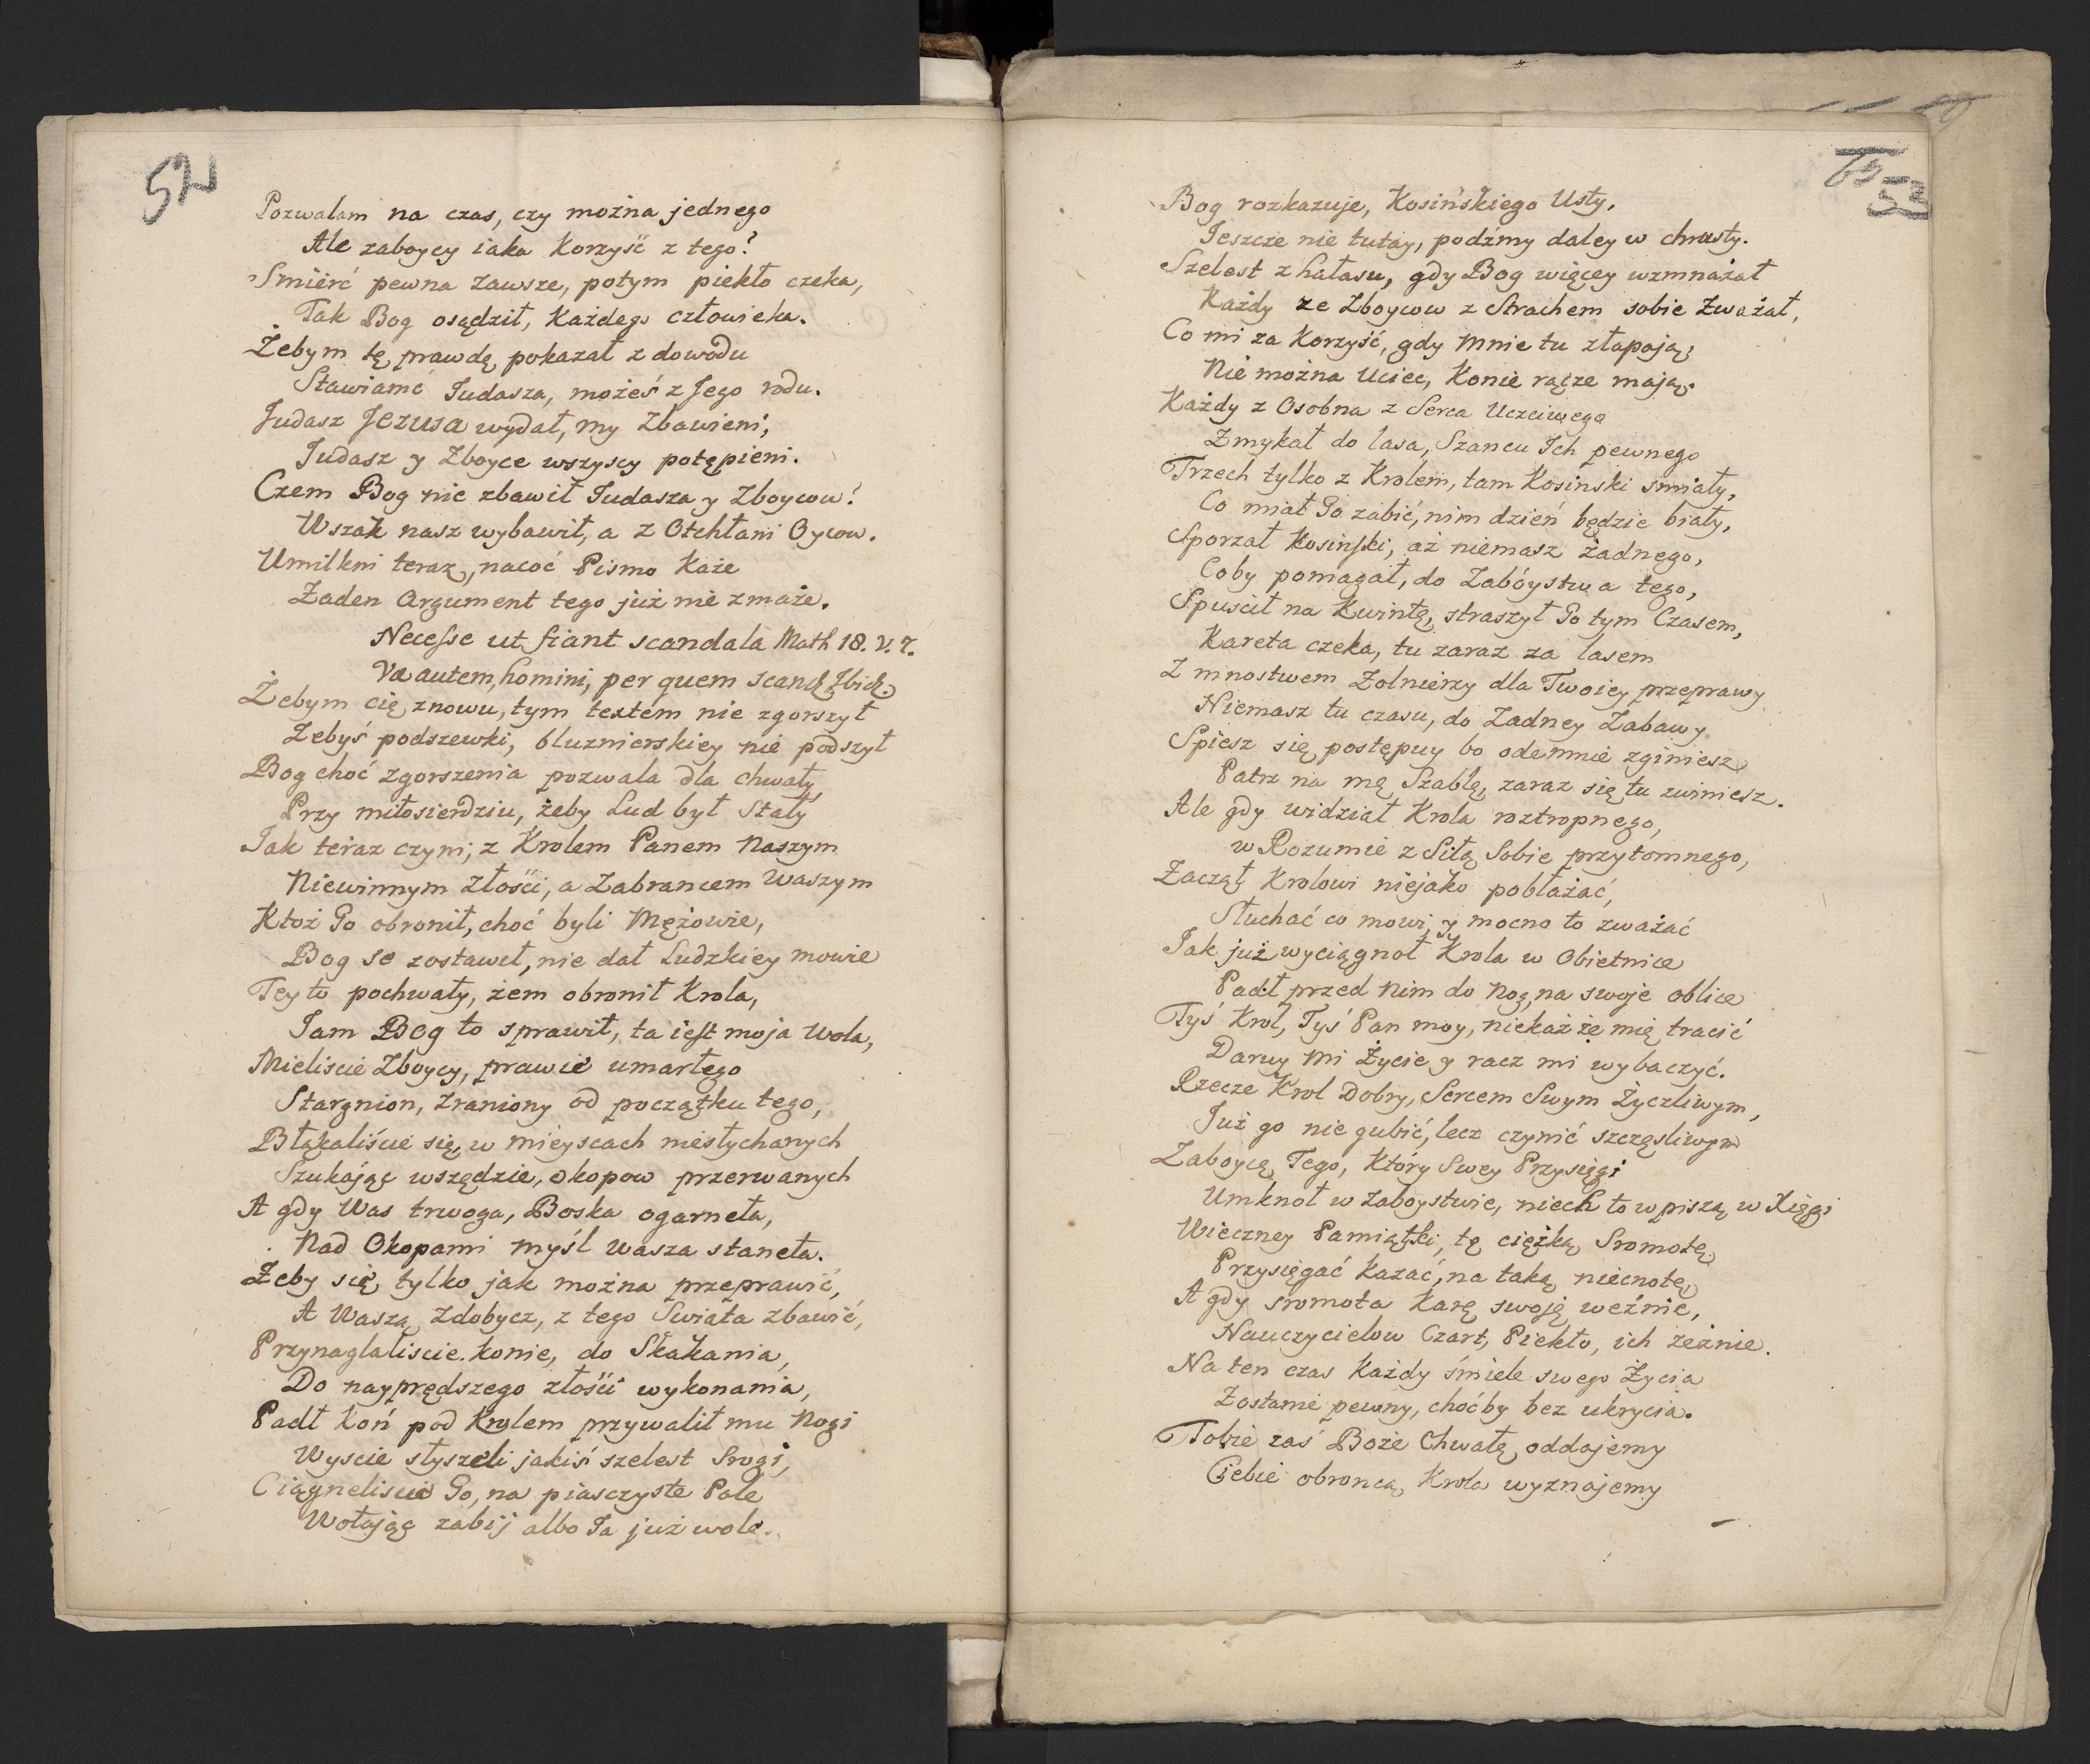 52
Pozwalam na czas, czy można jednego
Ale zaboycy iaka Korzyść z tego?
Smierć pewna zawsze, potym piekło czeka,
Tak Bog osądził, Każdego człowieka.
Żebym tę prawdę pokazał z dowodu
Stawiamć Judasza, możeś z Jego rodu.
Judasz Jezusa wydał, my Zbawieni;
Judasz y Zboyce wszyscy potępieni.
Czem Bog nie zbawił Judasza y Zboycow?
Wszak nasz wybawił, a z Otchłani Oycow.
Umilkni teraz, nacoć Pismo Każe
Żaden Argument tego już nie zmaże.
Necesse ut fiant scandala Math 18. V. 7.
Væ autem, homini, per quem scand. Ibid.
Żebym cię znowu, tym textem nie zgorszył
Żebyś podszewki, bluznierskiey nie podszył
Bog choć zgorszenia pozwala dla chwały
Przy miłosierdziu, żeby Lud był Stały
Jak teraz czyni; z Krolem Panem Naszym
Niewinnym złości, a Zabrancem Waszym
Ktoż Go obronił, choć byli Mężowie,
Bog se zostawił, nie dał Ludzkiey mowie
Tey to pochwały, żem obronił Krola,
Jam Bog to sprawił, ta iest moja Wola,
Mieliscie Zboycy, prawie umarłego
Stargnion, zraniony od początku tego,
Błąkaliście się, w mieyscach niesłychanych
Szukając wszędzie, okopow przerwanych
A gdy Was trwoga, Boska ogarneła,
Nad Okopami myśl wasza staneła.
Żeby się tylko jak można przeprawić,
A Waszą Zdobycz, z tego Swiata zbawić,
Przynaglaliscie. konie, do Skakania,
Do nayprędszego złości wykonania,
Padł koń pod Krolem przywalił mu Nogi
Wyscie słyszeli jakiś szelest Srogi,
Ciągneliscie Go, na piasczyste Pole
Wołając zabij albo Ja już wole.
53
Bog rozkazuje, Kosińskiego Usty,
Jeszcze nie tutay, podźmy daley w chrusty.
Szelest z hałasu, gdy Bog więcey wzmnażał
Każdy ze Zboycow z Strachem sobie Zważał,
Co mi za Korzyść, gdy Mnie tu złapają;
Nie można Uciec, Konie rącze mają.
Każdy z Osobna z Serca Uczciwego
Zmykał do lasa, Szancu Ich pewnego
Trzech tylko z Krolem, tam Kosinski smiały,
Co miał Go zabić, nim dzień będzie biały,
Sporzał Kosinski, aż niemasz żadnego,
Coby pomagał, do Zabóystwa tego,
Spuscił na Kwintę, straszył Go tym Czasem,
Kareta czeka, tu zaraz za lasem
Z mnostwem Zołnierzy dla Twoiey przeprawy
Niemasz tu czasu, do Zadney Zabawy
Spiesz się postępuy bo odemnie zginiesz
Patrz na mą Szablę, zaraz się tu zwiniesz.
Ale gdy widział Krola roztropnego,
w Rozumie z Siłą Sobie przytomnego,
Zaczął Krolowi niejako pobłażać,
Słuchać co mowi, y mocno to zważać
Jak już wyciągnoł Krola w Obietnice
Padł przed Nim do Nog, na swoje oblice
Tyś Krol, Tyś Pan moy, niekaż że mię tracić
Daruy Mi Życie y racz mi wybaczyć.
Rzecze Krol Dobry, Sercem Swym Życzliwym,
Już go nie gubić, lecz czynić szczęsliwym
Zaboycą Tego, Który Swey Przysięgi
Umknoł w zaboystwie, niech to wpiszą w Xięgi
Wieczney Pamiątki, tę ciężką Sromotę
Przysięgać Kazać, na taką niecnotę
A gdy sromota karę swoję weźnie,
Nauczycielow Czart, Piekło, ich zeźnie.
Na ten czas Każdy śmiele swego Życia
Zostanie pewny, choćby bez ukrycia.
Tobie zaś Boże Chwałę oddajemy
Ciebie obroncą Krola wyznajemy